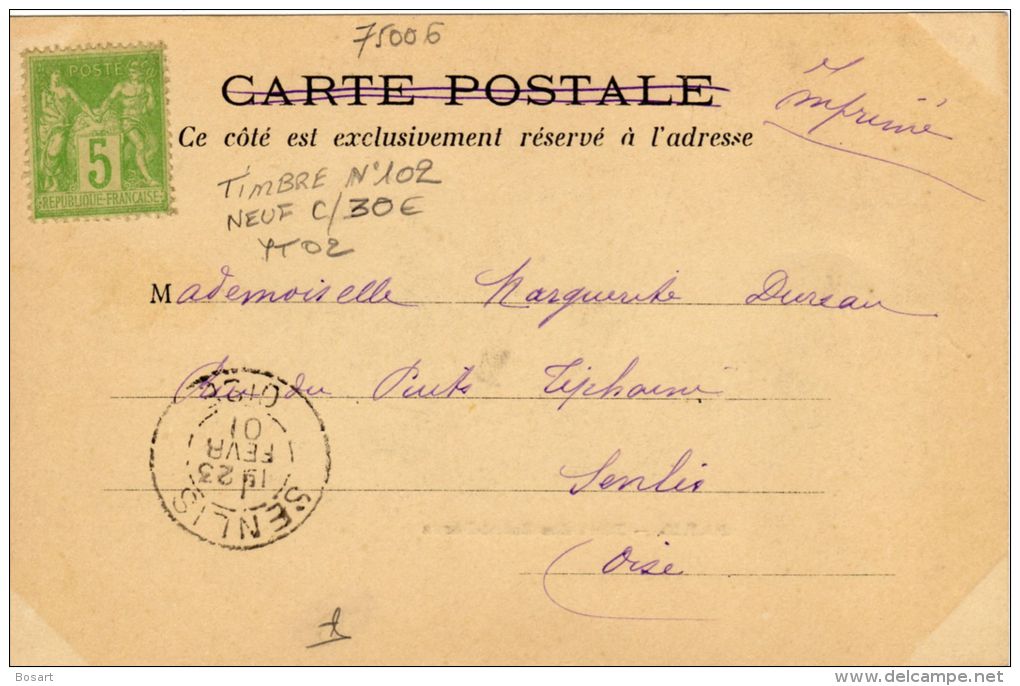 75006
POSTE
5
REPUBLIQUE FRANÇAISE
CARTE POSTALE
Imprimé
Ce côté est exclusivement réservé à l'adresse
TIMBRE N°102
NEUF C/30€
YT02
Mademoiselle Marguerite Dureau
Rue du Puits Tiphaine
Senlis
Oise
SENLIS
23
FEVR
01
OISE
Bosart
delcampe.net